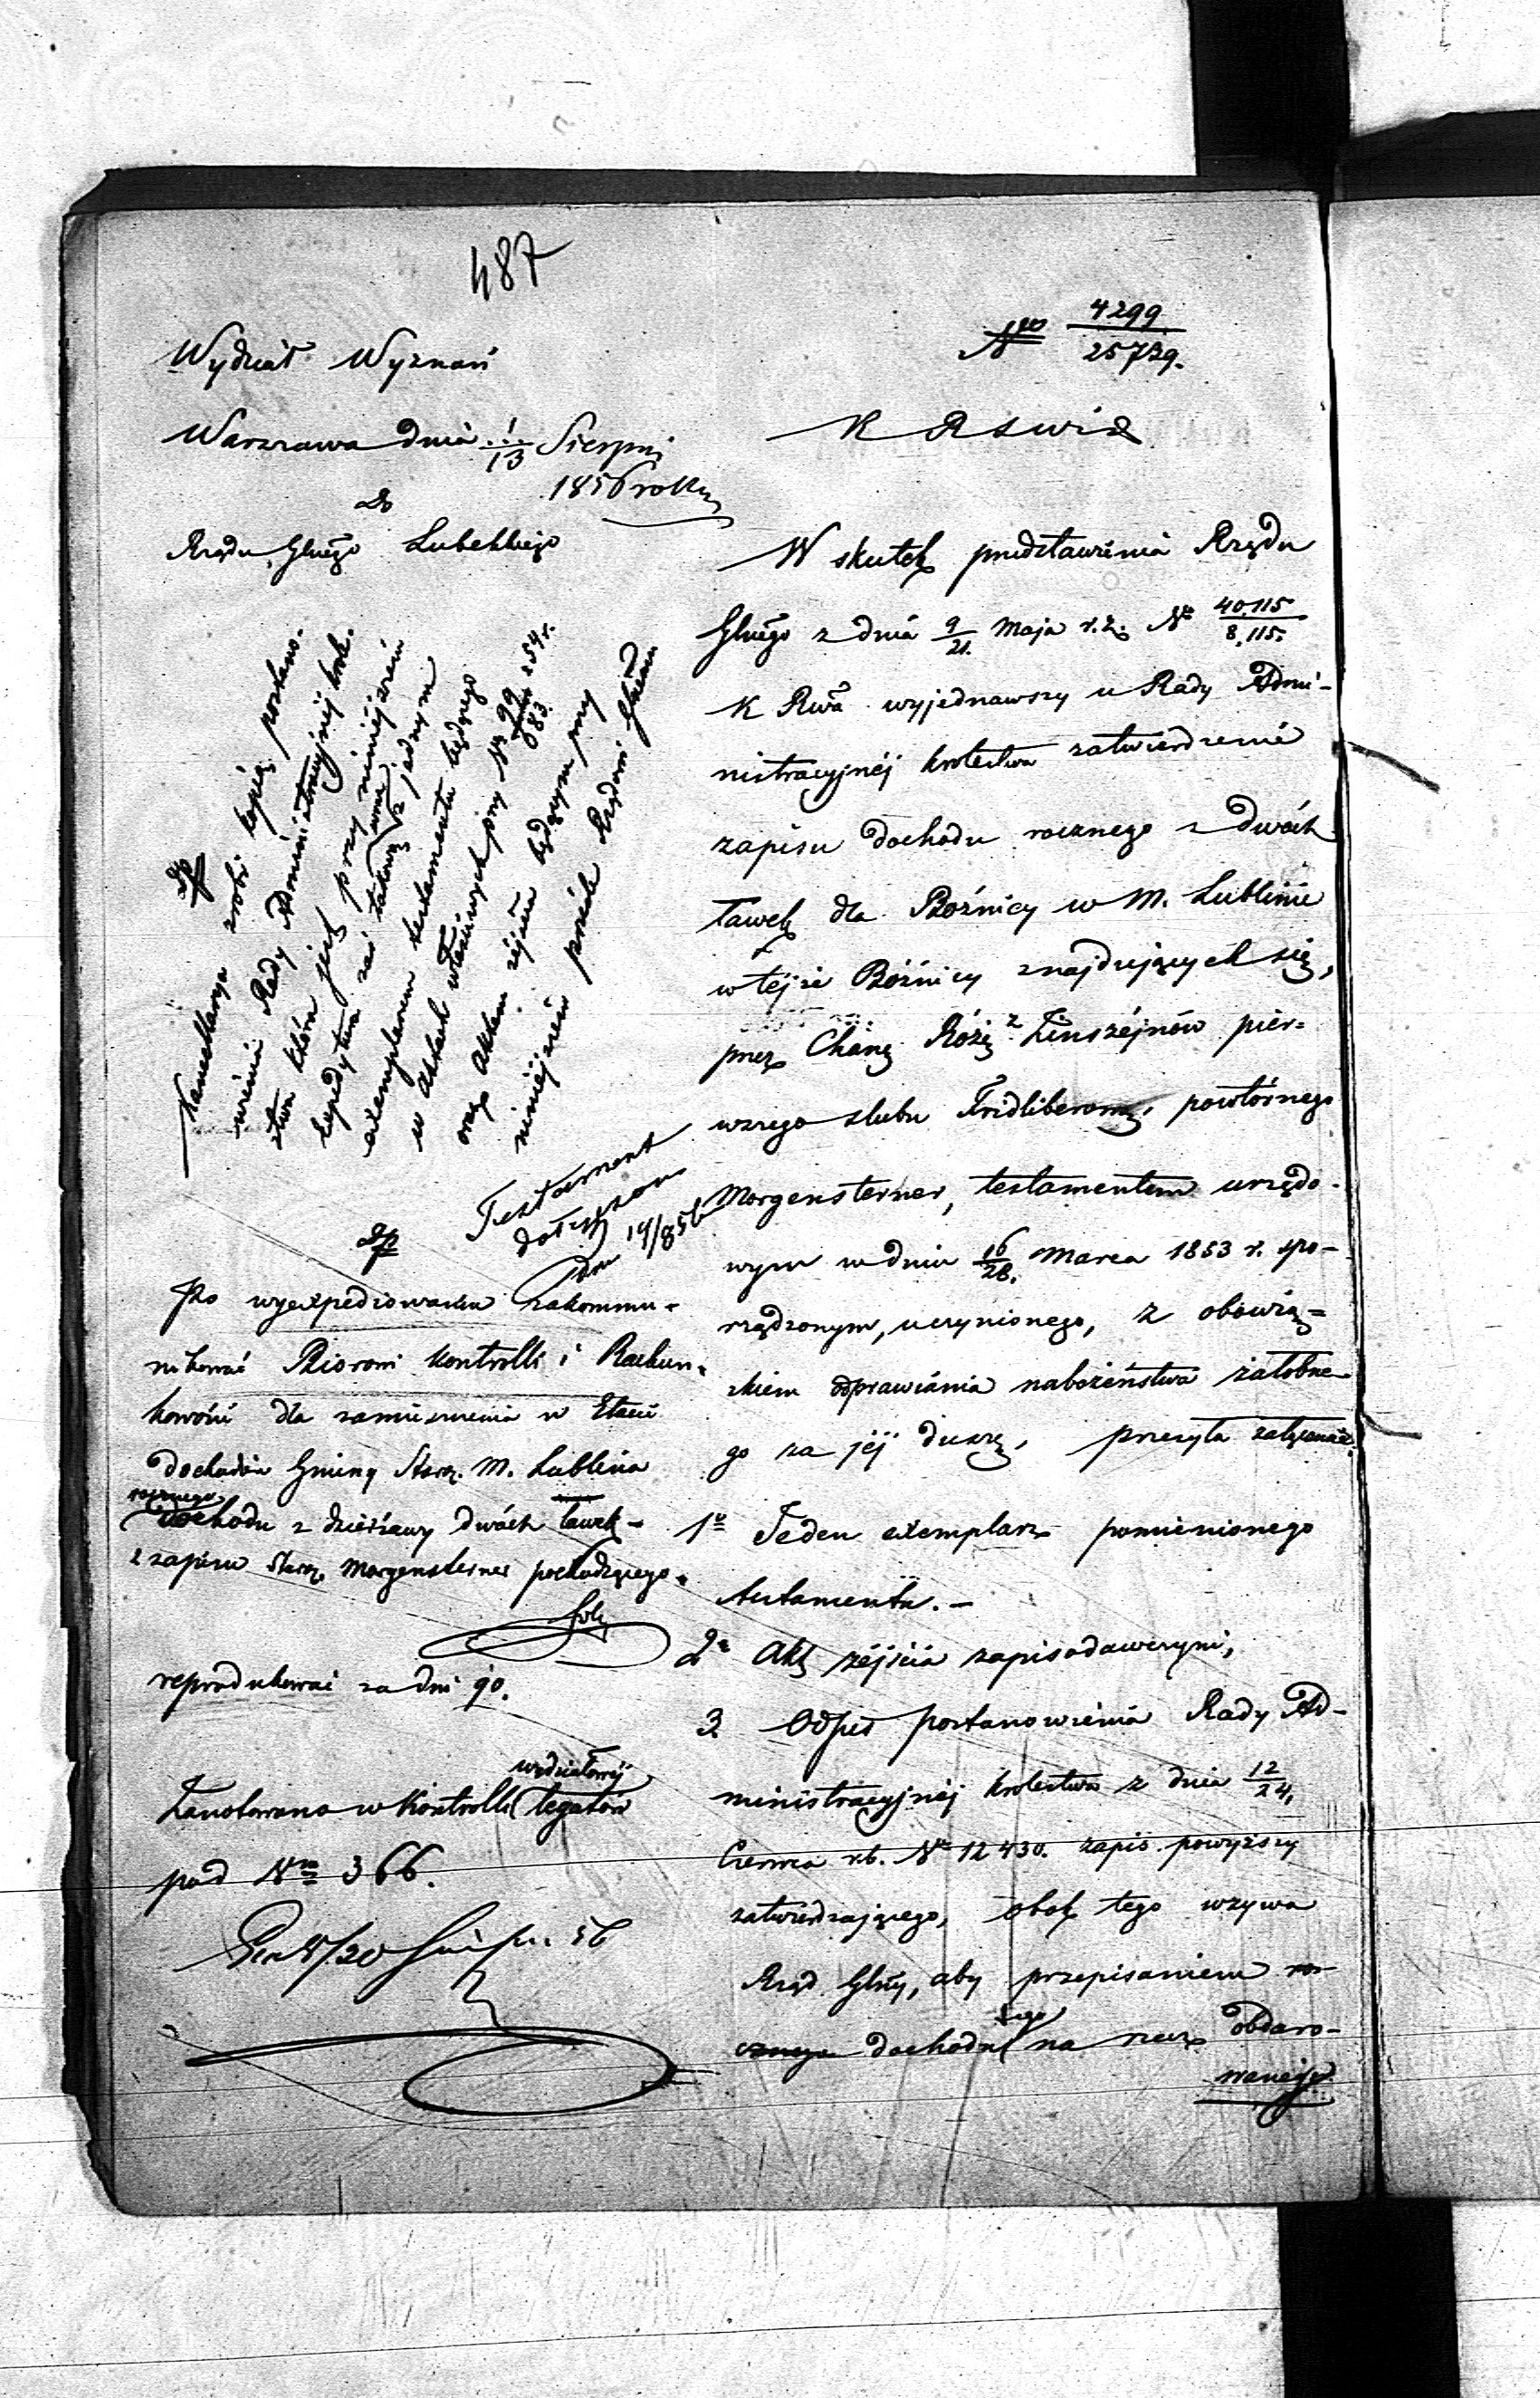 487
Wydział Wyznań
Warszawa dnia 1/13 Sierpni
1856 roku
Do
Rządu Glnego Lubelskiego
Kancellarya zrobi kopię postano-
wienia Rady Administracyjnej Krole-
stwa która jest przy niniejszem
Expedytura zaś takową wraz z jednym
exemplarzem testamentu będącego
w aktach właściwych przy N 99/083 z 54 r.
oraz aktem zejścia będącym przy
niniejszem prześle Rządowi Glnemu
Testament
dołączono
19/856
Po wyexpediowaniu zakommu-
nikować Biorowi Kontrolli i Rachun-
kowości dla zamieszczenia w Etacie
dochodów Gminy Starz. M. Lublina
rocznego
dochodu z dzierżawy dwóch ławek
z zapisu Starz. Morgensterner pochodzącego.
reprodukować za dni 90.
Zanotowano w Kontrolli wydziałowej legatów
pod Nrm 366.
Nro 4299/25739.
K R S W i D
W skutek przedstawienia Rządu
Glnego z dnia 9/21 Maja r. z. Nr 40,115/8,115.
K Rwa wyjednawszy u Rady Admi-
nistracyjnéj Krolestwa zatwierdzenie
zapisu dochodu rocznego z dwóch
ławek dla Bóźnicy w M. Lublinie
w téjże Bóźnicy znajdujących się,
przez Chanę Różę z Finszejnów pier-
wszego ślubu Fridliberową, powtórnego
Morgensterner, testamentem urzędo-
wym w dniu 16/28. Marca 1853 r. spo-
rządzonym, uczynionego, z obowią-
zkiem odprawiania nabożeństwa żałobne-
go za jéj duszę, przesyła załączenie
1o Jeden exemplarz pomienionego
testamentu.-
2o Akt zejścia zapisodawczyni,
3 Odpis postanowienia Rady Ad-
ministracyjnéj Krolestwa z dnia 12/24.
Czerwca r.b. Nr 12430. zapis powyższy
zatwierdzającego, obok tego wzywa
Rząd Glny, aby przepisaniem ro-
cznego dochodu tego na rzecz obdaro-
wanéj